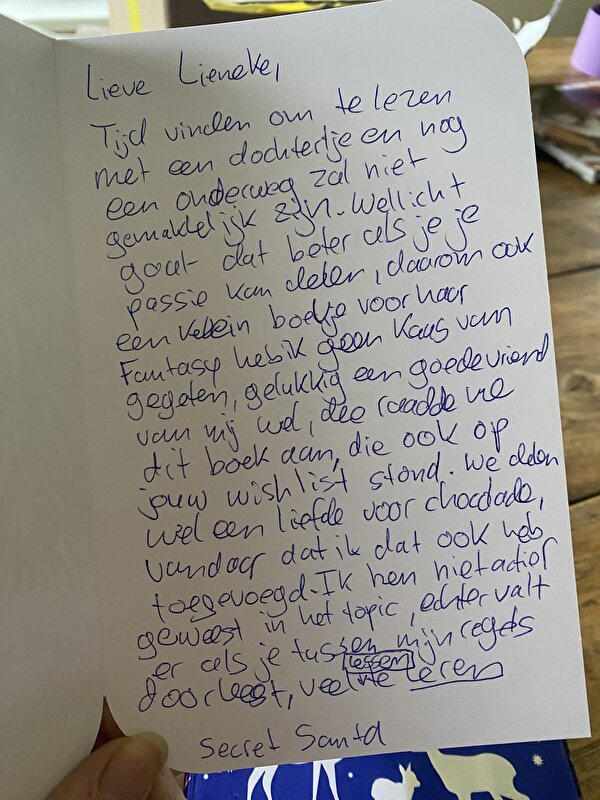 Lieve Lieneke,
Tijd vinden om te lezen
met een dochtertje en nog
een onderweg zal niet
gemakkelijk zijn. Wellicht
gaat dat beter als je je
passie kan delen, daarom ook
een klein boekje voor haar
Fantasy heb ik geen kaas van
gegeten, gelukkig een goede vriend
van mij wel, die raadde me
dit boek aan, die ook op
jouw wishlist stond. We delen
wel een liefde voor chocolade,
vandaar dat ik dat ook heb
toegevoegd. Ik ben niet actief
geweest in het topic, echter valt
er als je tussen mijn regels
lessen
doorleest, veel te leren
Secret Santa